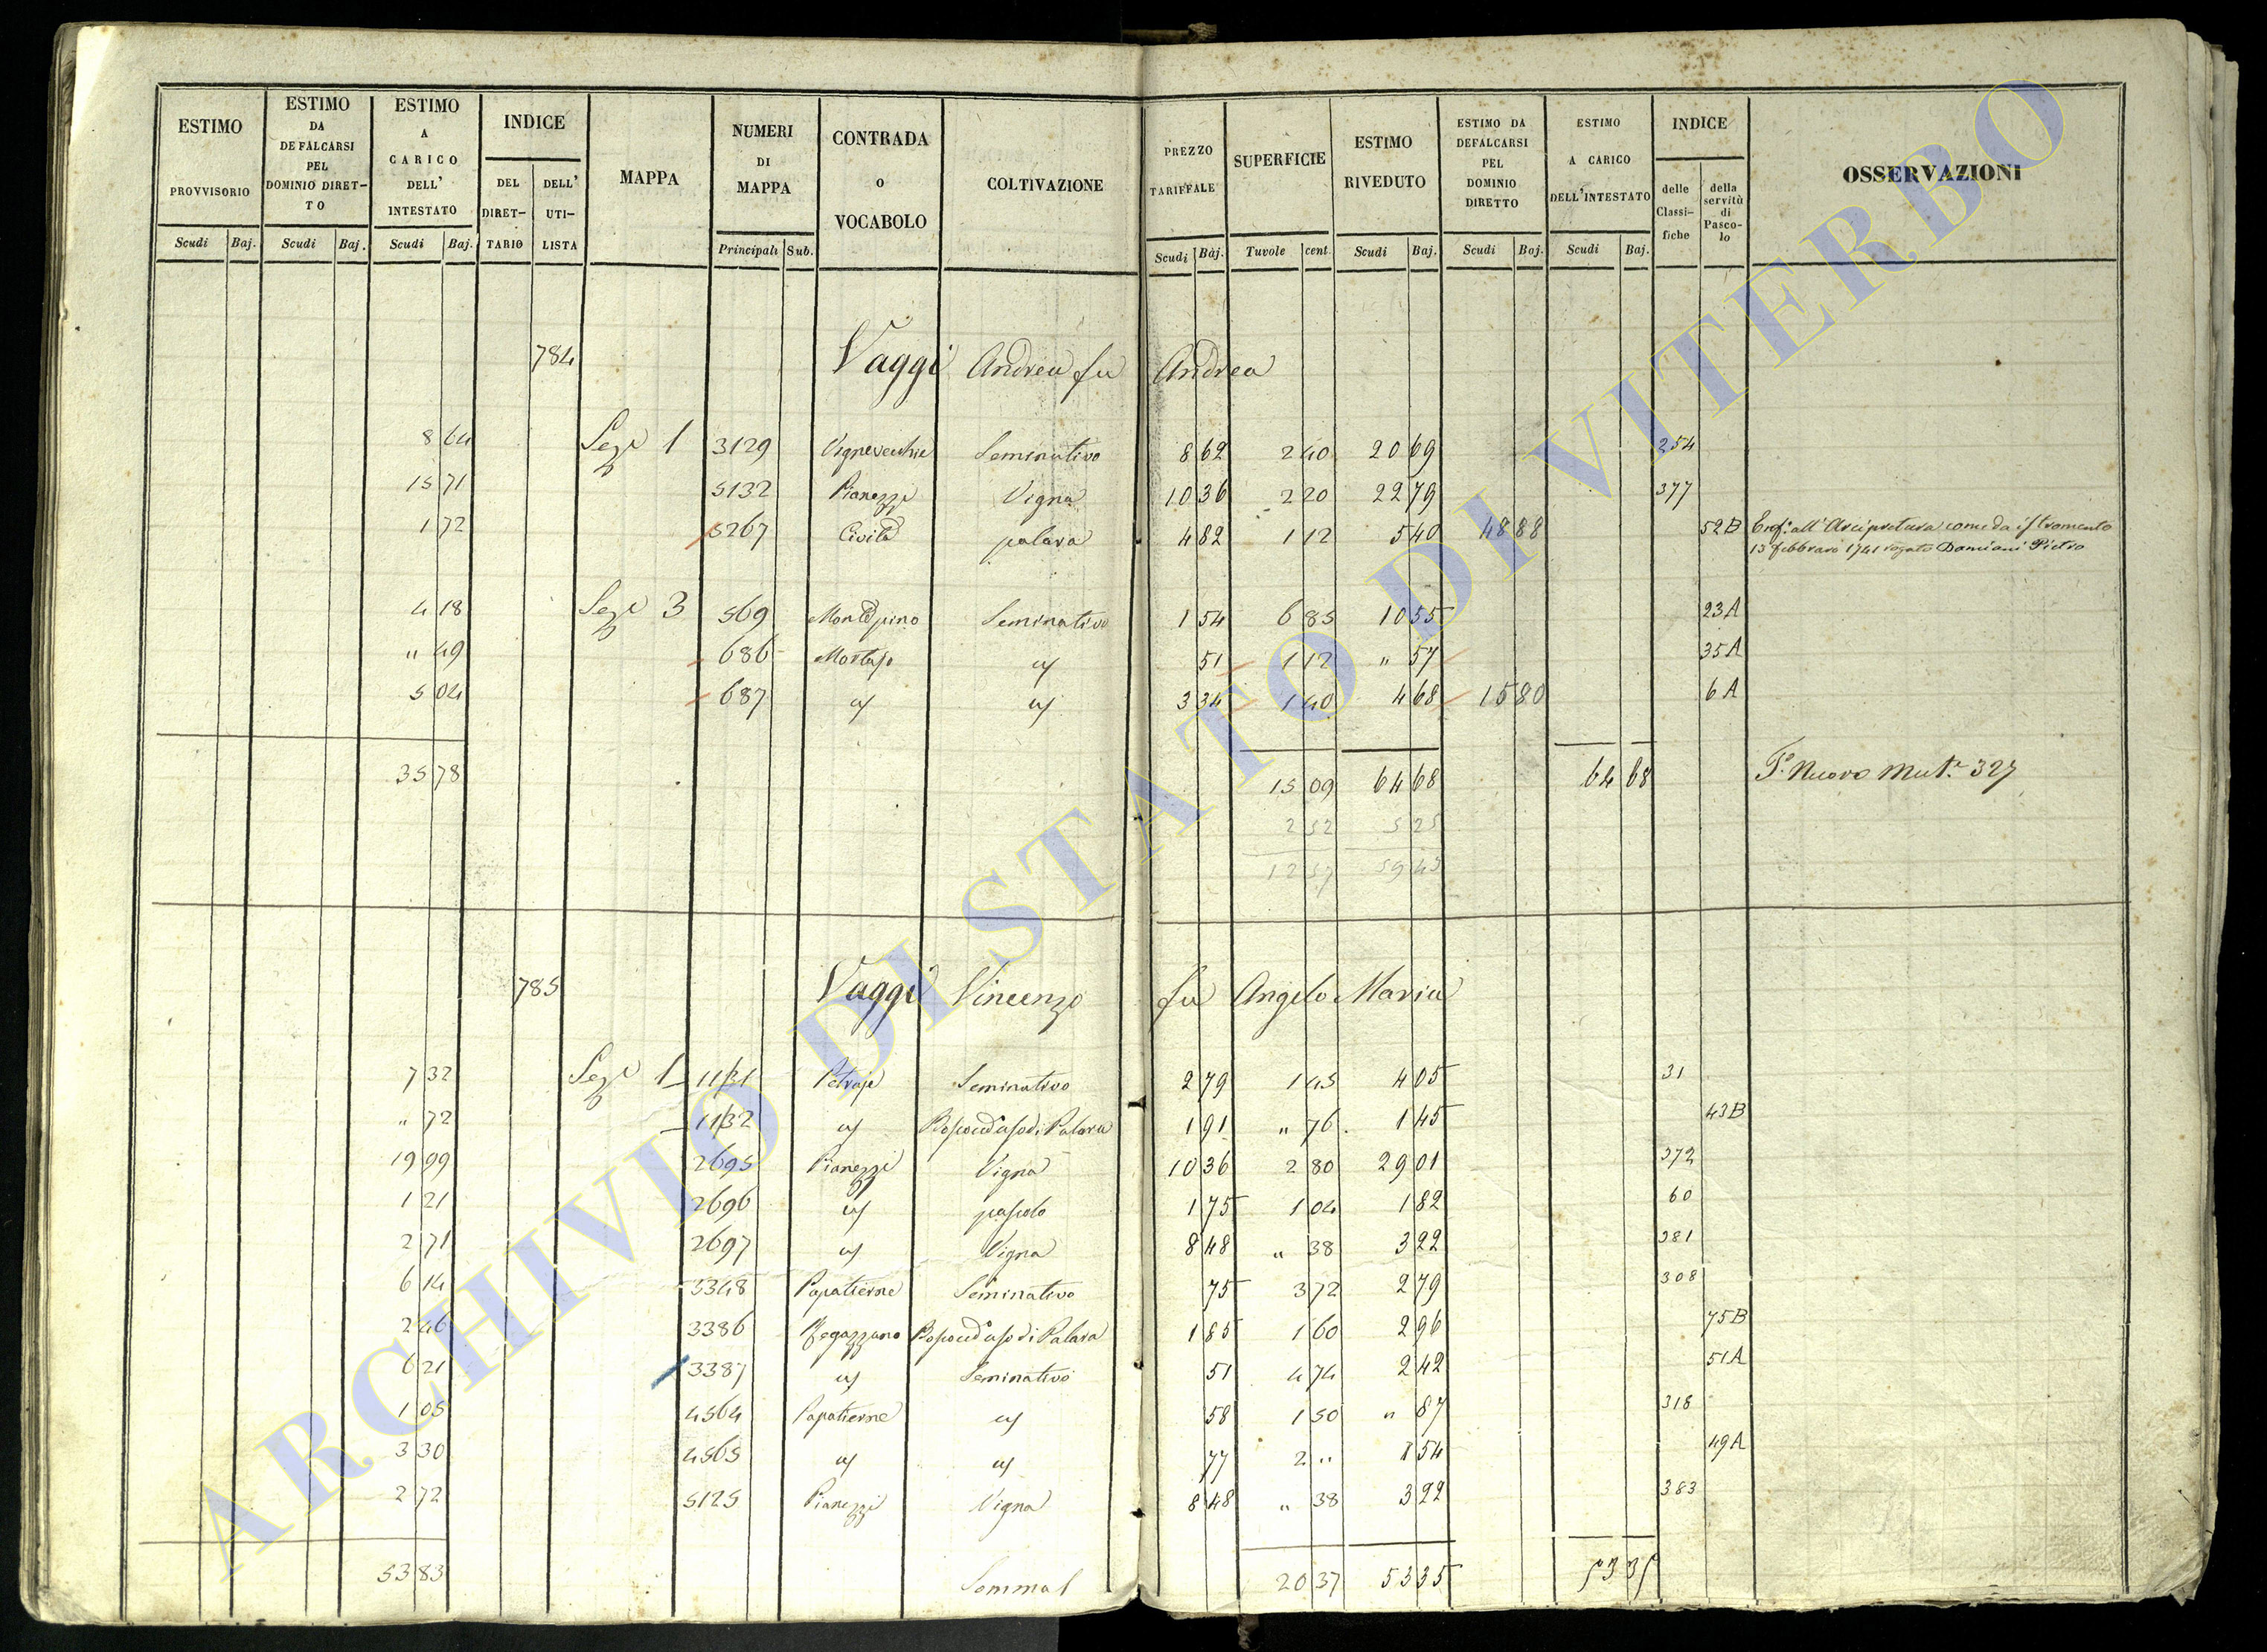 ESTIMO PROVVISORIO | ESTIMO DA DEFALCARSI PEL DOMINIO DIRET-TO | ESTIMO A CARICO DELL' INTESTATO | INDICE | MAPPA | NUMERI DI MAPPA | CONTRADA O VOCABOLO | COLTIVAZIONE | PREZZO TARIFFALE | SUPERFICIE | ESTIMO RIVEDUTO | ESTIMO DA DEFALCARSI PEL DOMINIO DIRETTO | ESTIMO A CARICO DELL'INTESTATO | INDICE | OSSERVAZIONI
DEL DIRET-TARIO | DELL' UTI-LISTA | delle Classi-fiche | della servitù di Pasco-lo
Scudi Baj. | Scudi Baj. | Scudi Baj. | Principali Sub. | Scudi Baj. | Tuvole cent. | Scudi Baj. | Scudi Baj. | Scudi Baj.
784 Vaggi Andrea fu Andrea
8 64 Seze 1 3129 Vignevecchie Seminativo 8 62 2 40 20 69 254
15 71 5132 Pianezze Vigna 10 36 2 20 22 79 377
1 72 5267 Civita palara 4 82 1 12 5 40 48 88 52B Enf: all'Arcipretura come da istromento
13 febbraro 1741 rogato Damiani Pietro
4 18 Seze 3 569 Montepino Seminativo 1 54 6 85 10 55 23A
" 49 686 51 1 12 " 57 35A
5 04 687 3 34 1 40 4 68 15 80 6A
35 78 15 09 64 68 64 68 Nuovo Mut. 327
2 52 5 25
12 57 59 43
785 Vaggi Vincenzo fu Angelo Maria
7 32 Seze 1 1131 Petraje Seminativo 2 79 1 45 4 05 31
" 72 1132 Bosco ad uso di Palara 1 91 " 76 1 45 43B
19 99 2695 Pianezze Vigna 10 36 2 80 29 01 372
1 21 2696 pascolo 1 75 1 04 1 82 60
2 71 2697 Vigna 8 48 " 38 3 22 381
6 14 3348 Papatierne Seminativo 75 3 72 2 79 308
2 46 3386 Bosco ad uso di Palara 1 85 1 60 2 96 75B
6 21 3387 Seminativo 51 4 74 2 42 51A
1 05 4564 Papatierne 58 1 50 " 87 318
3 30 4565 77 2 " 1 54 49A
2 72 5125 Pianezze Vigna 8 48 " 38 3 22 383
53 83 Somma 20 37 53 35 53 35
ARCHIVIO DI STATO DI VITERBO